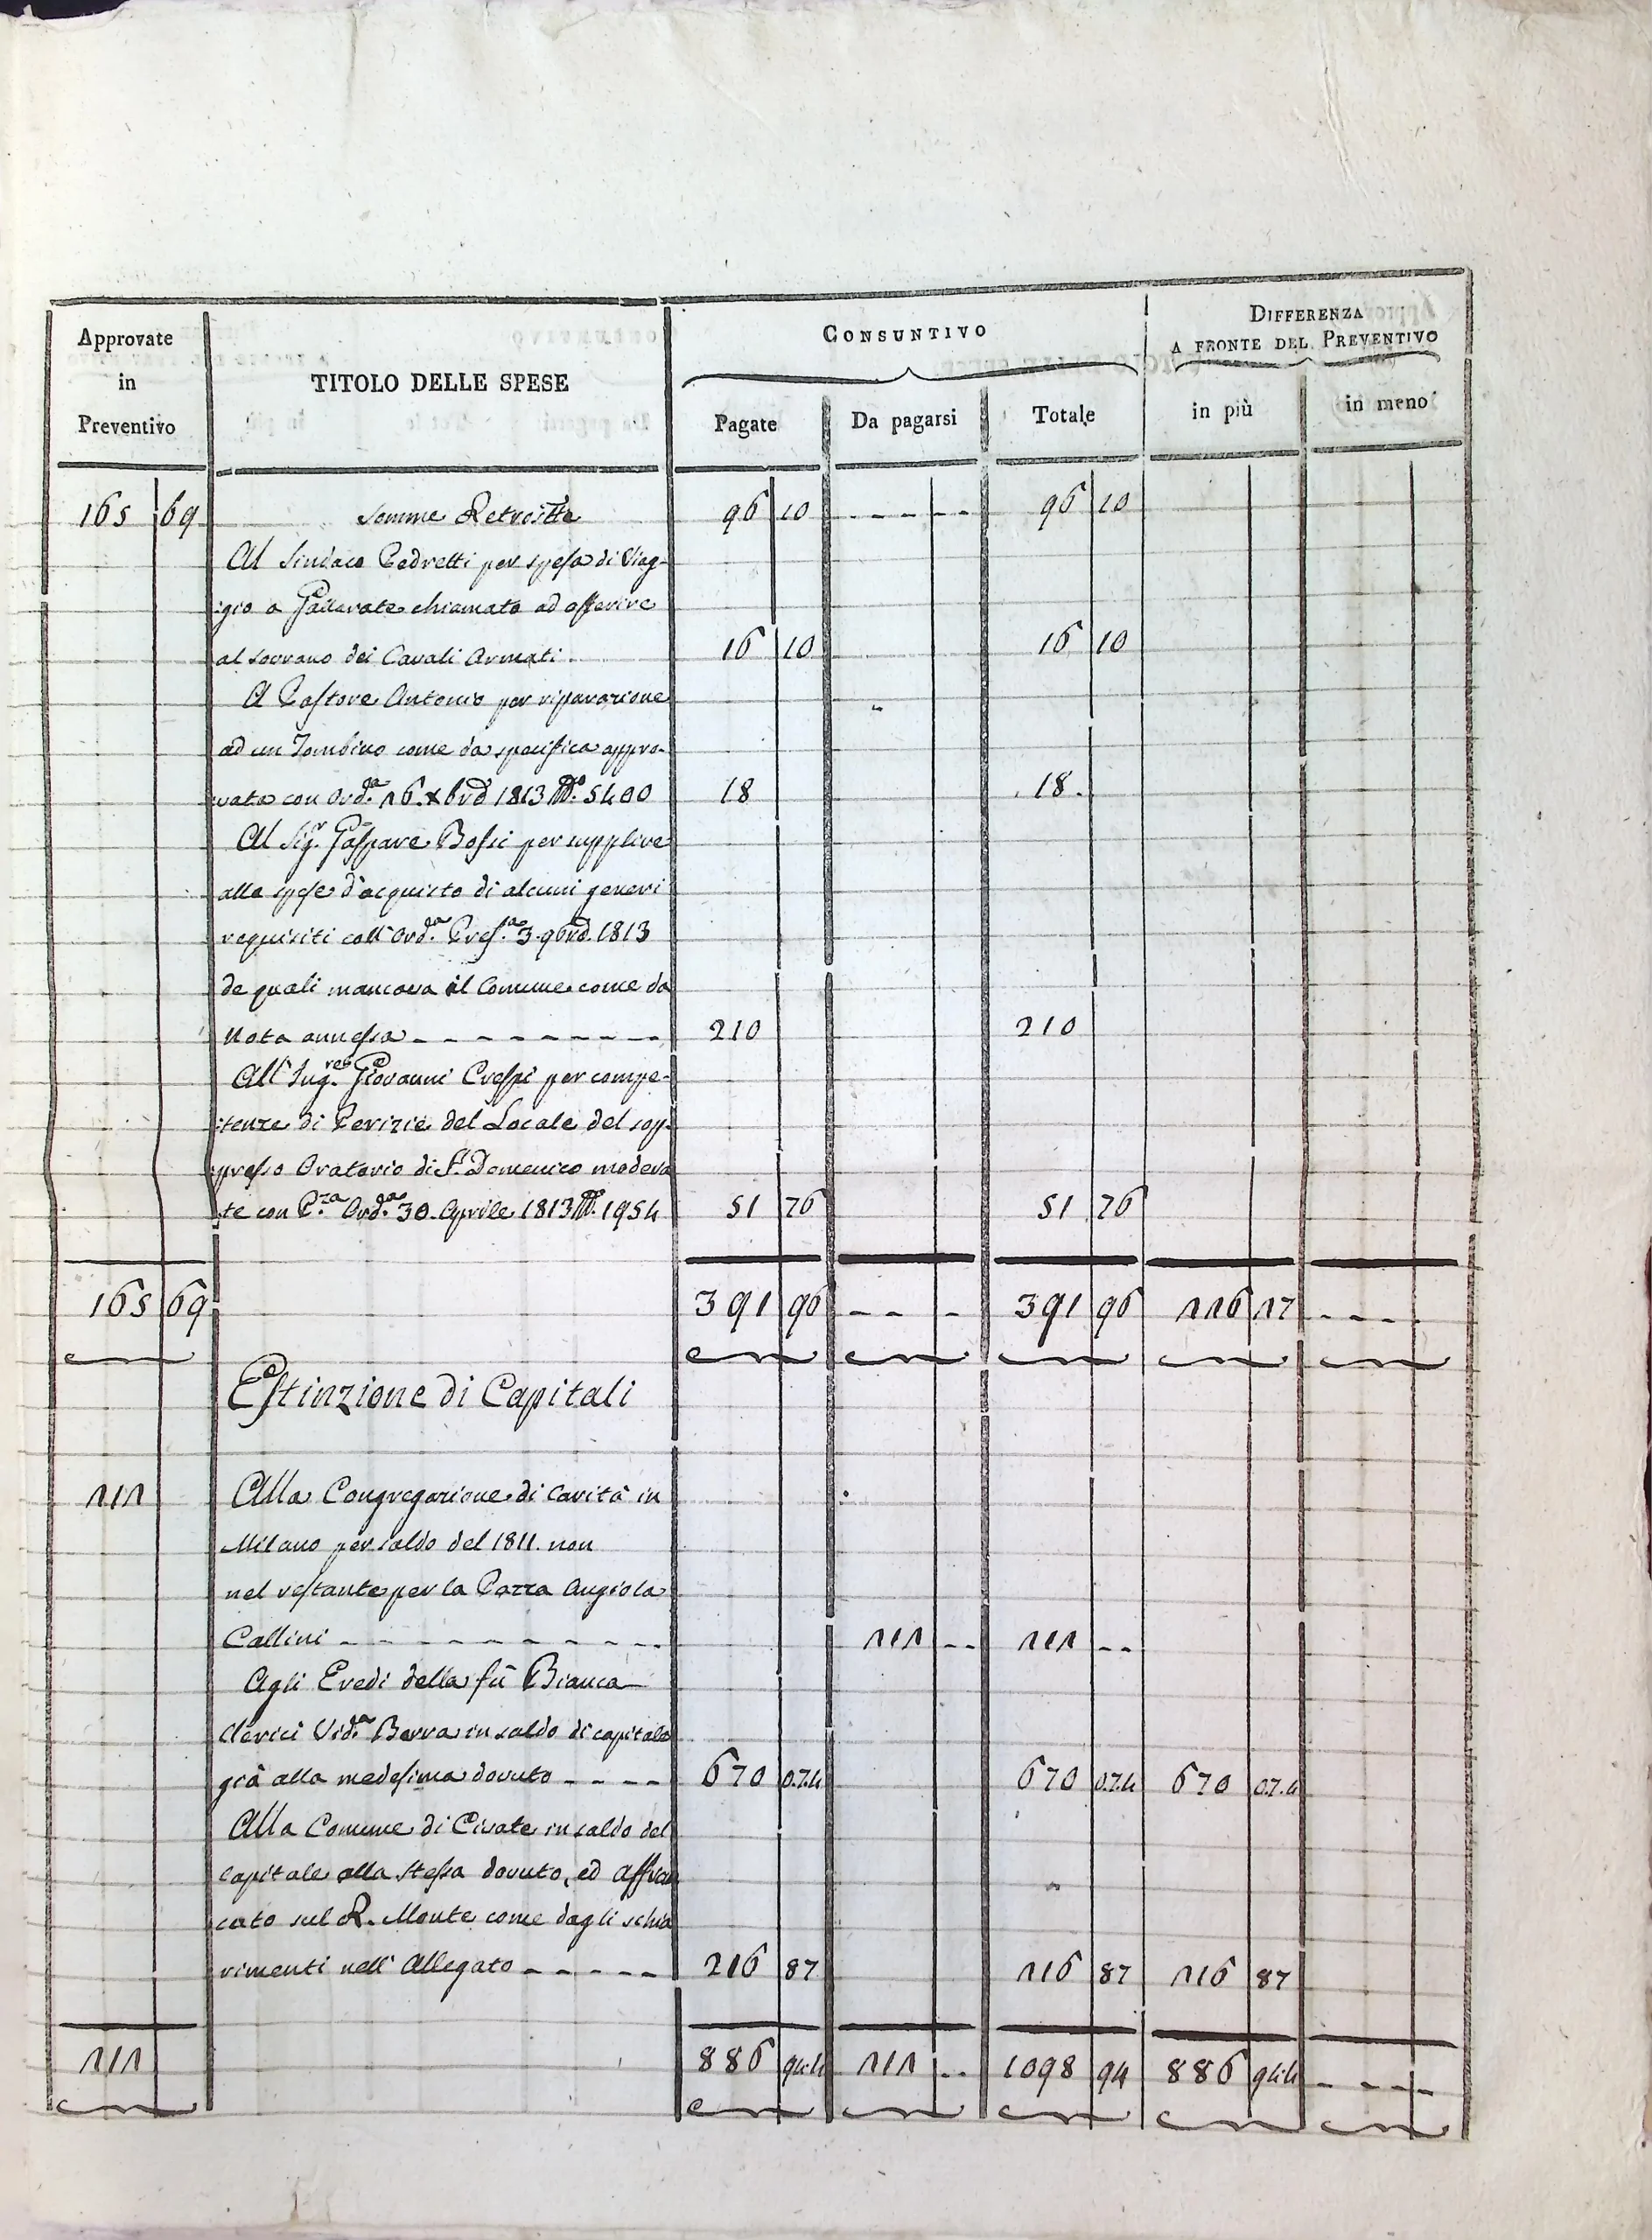 Approvate
in
Preventivo
TITOLO DELLE SPESE
CONSUNTIVO
DIFFERENZA
A FRONTE DEL PREVENTIVO
Pagate Da pagarsi Totale in più in meno
165 69 Somme Retroscritte 96 10 ----- 96 10
Al Sindaco Pedretti per spesa di Viag-
:gio a Gallarate chiamato ad offerire
al Sovrano dei Cavali Armati. 16 10 16 10
A Pastore Antonio per riparazione
ad un Tombino come da specifica appro-
vata con Ord.ª 26. Xbre 1813 N.º 5400 18 18.
Al Sig.r Gaspare Bossi per supplire
alle spese d'acquisto di alcuni generi
requisiti coll'Ord.ª Pref.ª 3. 9bre. 1813
de quali mancava il Comune come da
Nota annessa --------- 210 210
All'Ing.re Giovanni Crespi per compe-
:tenze di Perizie del Locale del sop-
presso Oratorio di S. Domenico modera
:te con P.za Ord.ª 30. Aprile 1813 N.º 1954 51 76 51 76
165 69 391 96 --- 391 96 226 27 ----
Estinzione di Capitali
212 Alla Congregazione di Carità in
Milano per saldo del 1811. non
nel restante per la Pazza Angiola
Callini ---------- 212 -- 212 --
Agli Eredi della fù Bianca
Clerici Vid.ª Berra in saldo di capitale
già alla medesima dovuto ---- 670 07.4 670 07.4 670 07.4
Alla Comune di Civate in saldo del
Capitale alla stessa dovuto, ed affran
cato sul R. Monte come dagli schia
rimenti nell'Allegato ----- 216 87 216 87 216 87
212 886 94.4 212 -- 1098 94 886 94.4 ----